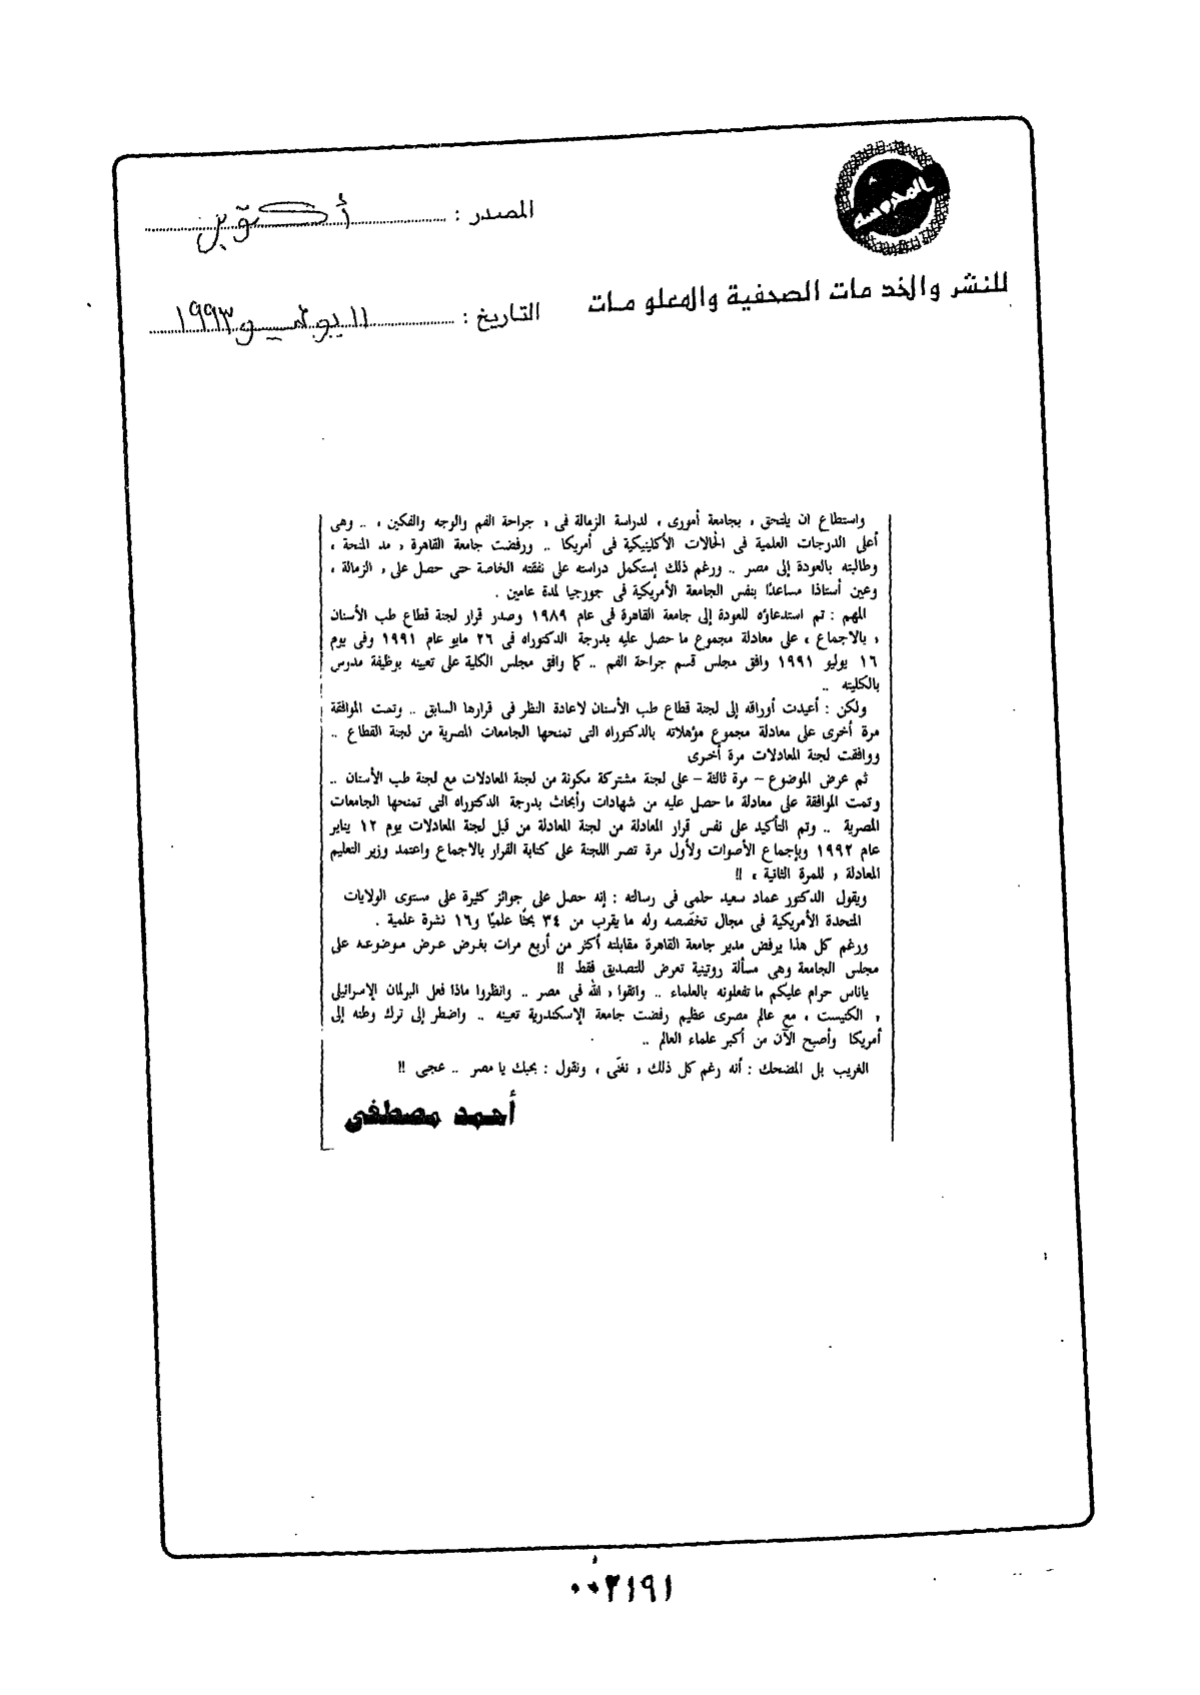 المصدر : أكتوبر
للنشر والخدمات الصحفية والمعلومات
التاريخ : ١١ يوليو ١٩٩٣
واستطاع ان يلتحق ، بجامعة أمورى ، لدراسة الزمالة فى ، جراحة الفم والوجه والفكين ، .. وهى
أعلى الدرجات العلمية فى الحالات الأكلينيكية فى أمريكا .. ورفضت جامعة القاهرة ، مد المنحة ،
وطالبته بالعودة إلى مصر .. ورغم ذلك إستكمل دراسته على نفقته الخاصة حتى حصل على ، الزمالة ،
وعين أستاذا مساعدًا بنفس الجامعة الأمريكية فى جورجيا لمدة عامين .
المهم : تم استدعاؤه للعودة إلى جامعة القاهرة فى عام ١٩٨٩ وصدر قرار لجنة قطاع طب الأسنان
، بالاجماع ، على معادلة مجموع ما حصل عليه بدرجة الدكتوراه فى ٢٦ مايو عام ١٩٩١ وفى يوم
١٦ يوليو ١٩٩١ وافق مجلس قسم جراحة الفم .. كما وافق مجلس الكلية على تعيينه بوظيفة مدرس
بالكليته ..
ولكن : أعيدت أوراقه إلى لجنة قطاع طب الأسنان لاعادة النظر فى قرارها السابق .. وتمت الموافقة
مرة أخرى على معادلة مجموع مؤهلاته بالدكتوراه التى تمنحها الجامعات المصرية من لجنة القطاع ..
ووافقت لجنة المعادلات مرة أخرى
ثم عرض الموضوع – مرة ثالثة – على لجنة مشتركة مكونة من لجنة المعادلات مع لجنة طب الأسنان ..
وتمت الموافقة على معادلة ما حصل عليه من شهادات وأبحاث بدرجة الدكتوراه التى تمنحها الجامعات
المصرية .. وتم التأكيد على نفس قرار المعادلة من لجنة المعادلة من قبل لجنة المعادلات يوم ١٢ يناير
عام ١٩٩٢ وبإجماع الأصوات ولأول مرة تصر اللجنة على كتابة القرار بالاجماع واعتمد وزير التعليم
المعادلة ، للمرة الثانية ، !!
ويقول الدكتور عماد سعيد حلمى فى رسالته : إنه حصل على جوائز كثيرة على مستوى الولايات
المتحدة الأمريكية فى مجال تخصصه وله ما يقرب من ٣٤ بحثًا علميًا و١٦ نشرة علمية .
ورغم كل هذا يرفض مدير جامعة القاهرة مقابلته أكثر من أربع مرات بغرض عرض موضوعه على
مجلس الجامعة وهى مسألة روتينية تعرض للتصديق فقط !!
ياناس حرام عليكم ما تفعلونه بالعلماء .. واتقوا ، الله فى مصر .. وانظروا ماذا فعل البرلمان الإسرائيلى
، الكنيست ، مع عالم مصرى عظيم رفضت جامعة الإسكندرية تعيينه .. واضطر إلى ترك وطنه إلى
أمريكا وأصبح الآن من أكبر علماء العالم ..
الغريب بل المضحك : أنه رغم كل ذلك ، نغنّى ، ونقول : بحبك يا مصر .. عجبى !!
أحمد مصطفى